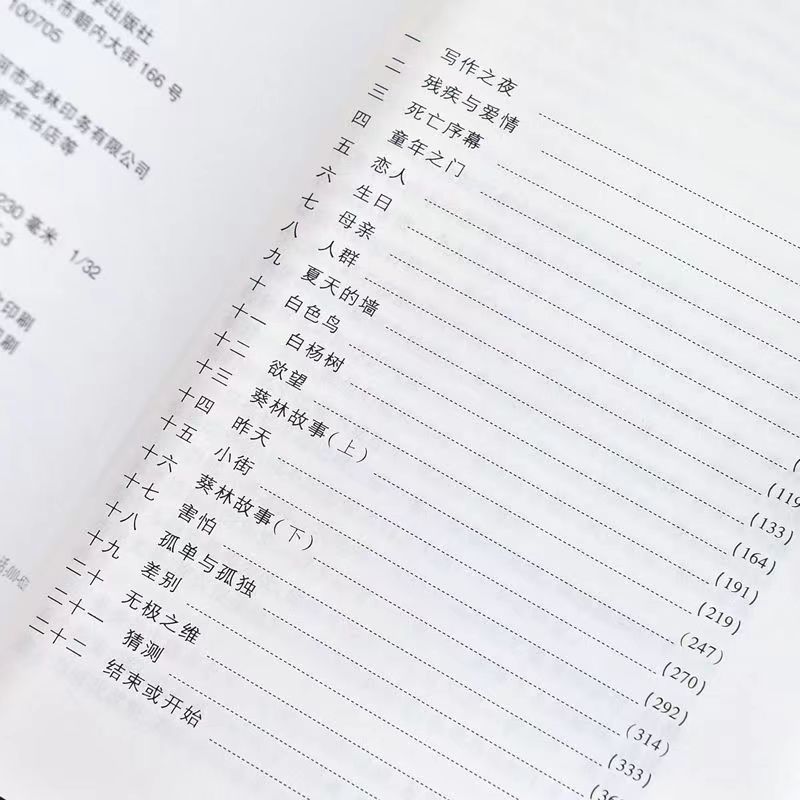 学出版社
京市朝内大街 166 号
100705
河市龙林印务有限公司
新华书店等
230 毫米 1/32
3
印刷
一 写作之夜
二 残疾与爱情
三 死亡序幕
四 童年之门
五 恋人
六 生日
七 母亲
八 人群
九 夏天的墙
十 白色鸟
十一 白杨树
十二 欲望
十三 葵林故事(上)
十四 昨天
十五 小街
十六 葵林故事(下)
十七 害怕
十八 孤单与孤独
十九 差别
二十 无极之维
二十一 猜测
二十二 结束或开始
(119
(133)
(164)
(191)
(219)
(247)
(270)
(292)
(314)
(333)
(36